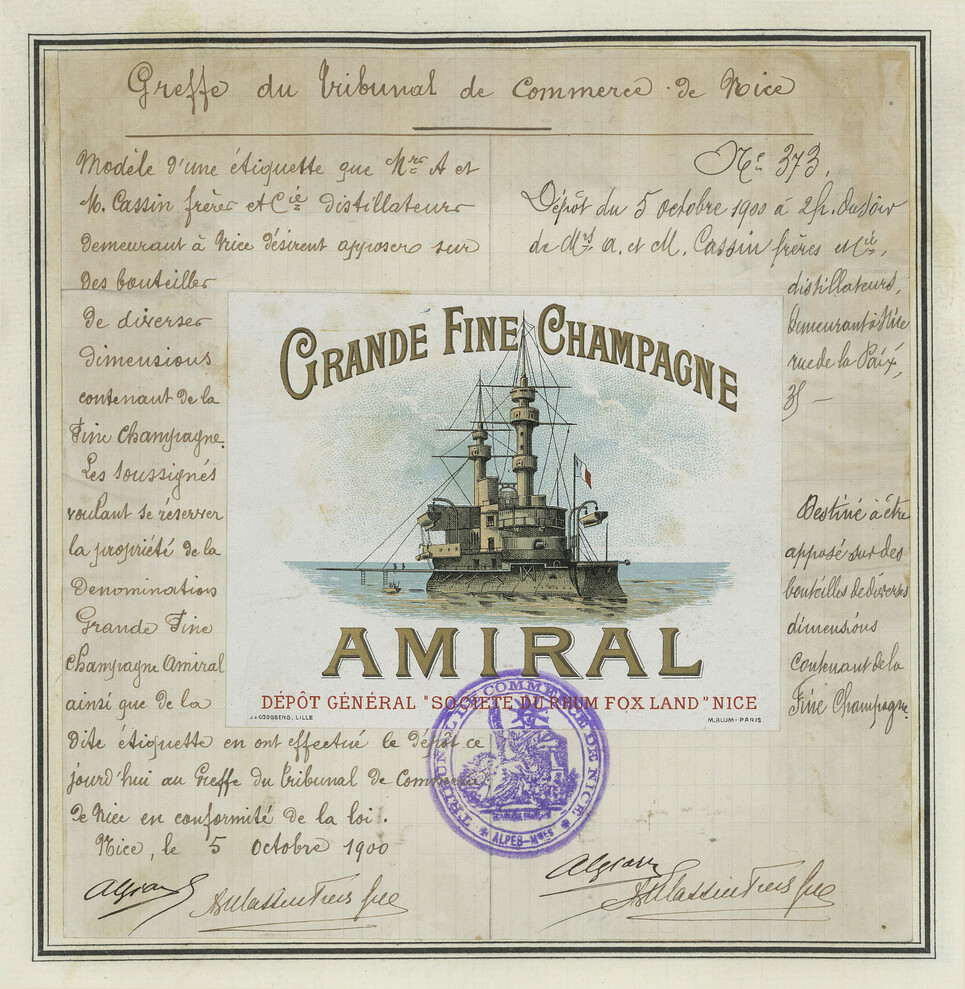 Greffe du Tribunal de Commerce de Nice
Modèle d'une étiquette que Mrs A et
M. Cassin frères et Cie distillateurs
demeurant à Nice désirent apposer sur
des bouteilles
de diverses
dimensions
contenant de la
Fine Champagne.
Les soussignés
voulant se réserver
la propriété de la
Denomination
Grande Fine
Champagne Amiral
ainsi que de la
dite étiquette en ont effectué le dépôt ce
jourd'hui au Greffe du Tribunal de Commerce
de Nice en conformité de la loi.
Nice, le 5 Octobre 1900
No 373.
Dépôt du 5 octobre 1900 à 2h. du soir
de Mrs A. et M. Cassin frères et Cie,
distillateurs,
demeurant à Nice
rue de la Paix,
Destiné à être
apposé sur des
bouteilles de diverses
dimensions
contenant de la
Fine Champagne.
GRANDE FINE CHAMPAGNE
AMIRAL
DÉPÔT GÉNÉRAL "SOCIÉTÉ DU RHUM FOX LAND" NICE
J. & GOOSSENS, LILLE
M. BLUM - PARIS
TRIBUNAL DE COMMERCE DE NICE
ALPES-MMES